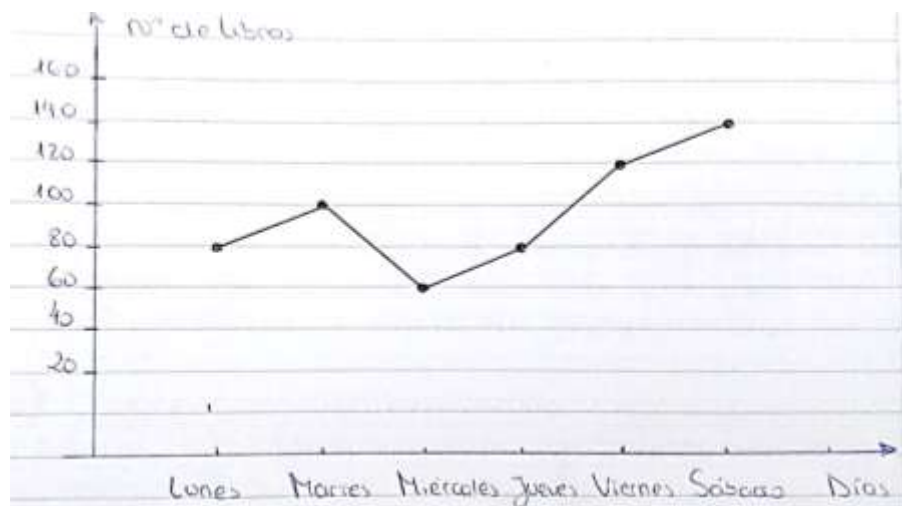 Nº de libros
160
140
120
100
80
60
40
20
Lunes Martes Miércoles Jueves Viernes Sábado Días